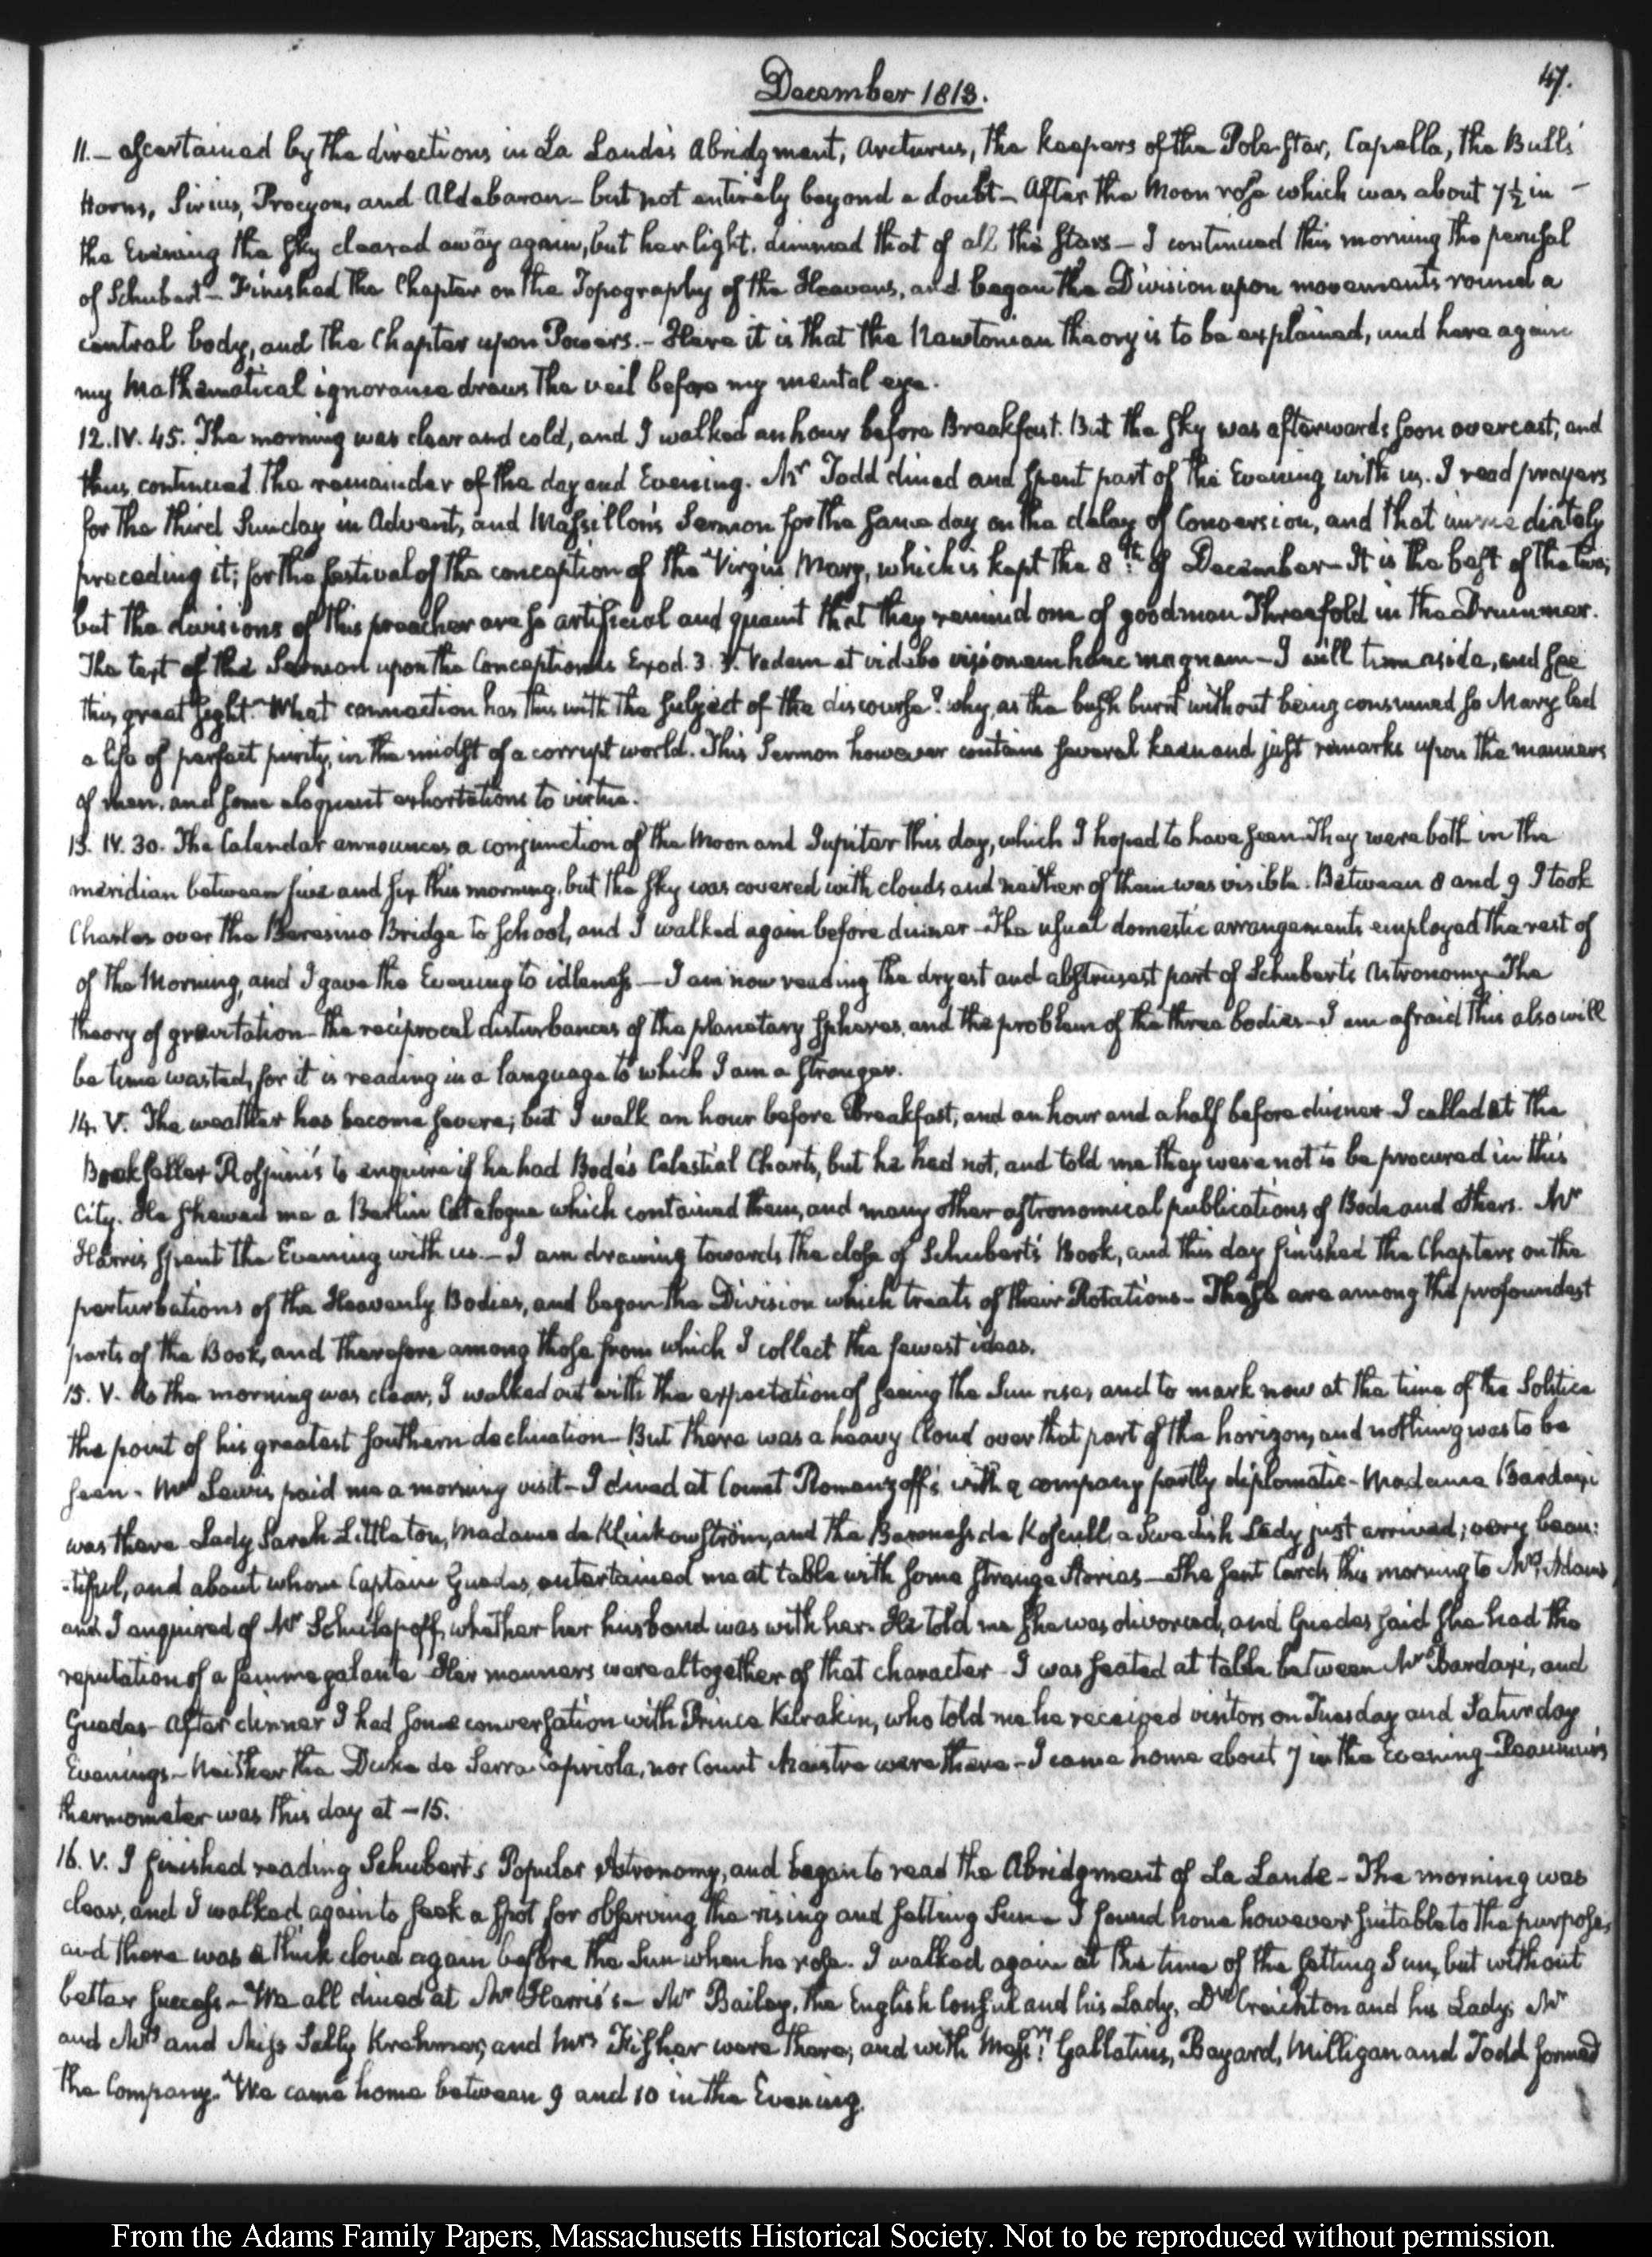 December 1813.
47.
11.— ascertained by the directions in La Lande's Abridgment, Arcturus, the keepers of the Pole Star, Capella, the Bulls'
Horns, Sirius, Procyon, and Aldebaran— but not entirely beyond a doubt— After the Moon rose which was about 7½ in
the Evening the sky cleared away again, but her light, dimmed that of all the Stars— I continued this morning the perusal
of Schubert— Finished the Chapter on the Topography of the Heavens, and began the Division upon movements round a
central body, and the Chapter upon Powers.— Here it is that the Newtonian theory is to be explained, and here again
my Mathematical ignorance draws the veil before my mental eye.
12. IV. 45. The morning was clear and cold, and I walked an hour before Breakfast. But the sky was afterwards soon overcast, and
thus continued the remainder of the day and Evening. Mr Todd dined and spent part of the Evening with us. I read prayers
for the third Sunday in Advent, and Massillon's Sermon for the same day on the delay of Conversion, and that immediately
preceding it; for the festival of the conception of the Virgin Mary, which is kept the 8th of December— It is the best of the two;
but the divisions of this preacher are so artificial and quaint that they remind one of goodman Threefold in the Drummer.
The text of the Sermon upon the Conception is Exod. 3. 3. Vadam et videbo visionem hanc magnam— I will turn aside, and see
this great sight. What connection has this with the subject of the discourse? why, as the bush burnt without being consumed so Mary led
a life of perfect purity, in the midst of a corrupt world. This Sermon however contains several keen and just remarks upon the manners
of men, and some eloquent exhortations to virtue.
13. IV. 30. The Calendar announces a conjunction of the Moon and Jupiter this day, which I hoped to have seen. They were both in the
meridian between five and six this morning, but the sky was covered with clouds and neither of them was visible. Between 8 and 9 I took
Charles over the Beresino Bridge to School, and I walked again before dinner— The usual domestic arrangements employed the rest of
of the Morning, and I gave the Evening to idleness— I am now reading the dryest and abstrusest part of Schubert's Astronomy— The
theory of gravitation— the reciprocal disturbances of the planetary spheres, and the problem of the three bodies— I am afraid this also will
be time wasted, for it is reading in a language to which I am a stranger.
14. V. The weather has become severe; but I walk an hour before Breakfast, and an hour and a half before dinner— I called at the
Bookseller Rospini's to enquire if he had Bode's Celestial Charts, but he had not, and told me they were not to be procured in this
City. He shewed me a Berlin Catalogue which contained them, and many other astronomical publications of Bode and others. Mr
Harris spent the Evening with us.— I am drawing towards the close of Schubert's Book, and this day finished the Chapters on the
perturbations of the Heavenly Bodies, and began the Division which treats of their Rotations— These are among the profoundest
parts of the Book, and therefore among those from which I collect the fewest ideas.
15. V. As the morning was clear, I walked out with the expectation of seeing the Sun rise, and to mark now at the time of the Solstice
the point of his greatest southern declination— But there was a heavy Cloud over that part of the horizon, and nothing was to be
seen. Mr Lewis paid me a morning visit— I dined at Count Romanzoff's, with a company partly diplomatic— Madame Bardaxi
was there Lady Sarah Littleton, Madame de Klinkowström, and the Baroness de a Swedish Lady just arrived; very beau:
:tiful, and about whom Captain Guedes, entertained me at table with some strange stories— She sent Cards this morning to Mrs Adams
and I enquired of Mr whether her husband was with her. He told me she was divorced, and Guedes said she had the
reputation of a femme galante Her manners were altogether of that character— I was seated at table between Mr Bardaxi, and
Guedes— After dinner I had some conversation with Prince Kurakin, who told me he received visitors on Tuesday and Saturday
Evenings— Neither the Duke de Serra Capriola, nor Count Maistre were there— I came home about 7 in the Evening— Reaumur's
thermometer was this day at —15.
16. V. I finished reading Schubert's Popular Astronomy, and began to read the Abridgment of La Lande— The morning was
clear, and I walked again to seek a spot for observing the rising and setting Sun— I found none however suitable to the purpose,
and there was a thick cloud again before the Sun when he rose. I walked again at the time of the setting Sun, but without
better success— We all dined at Mr Harris's— Mr Bailey, the English Consul and his Lady, Dr Creighton and his Lady, Mr
and Mrs and Miss Sally Krehmer, and Mrs Fisher were there; and with Messrs Gallatin, Bayard, Milligan and Todd formed
the Company. We came home between 9 and 10 in the Evening.
From the Adams Family Papers, Massachusetts Historical Society. Not to be reproduced without permission.